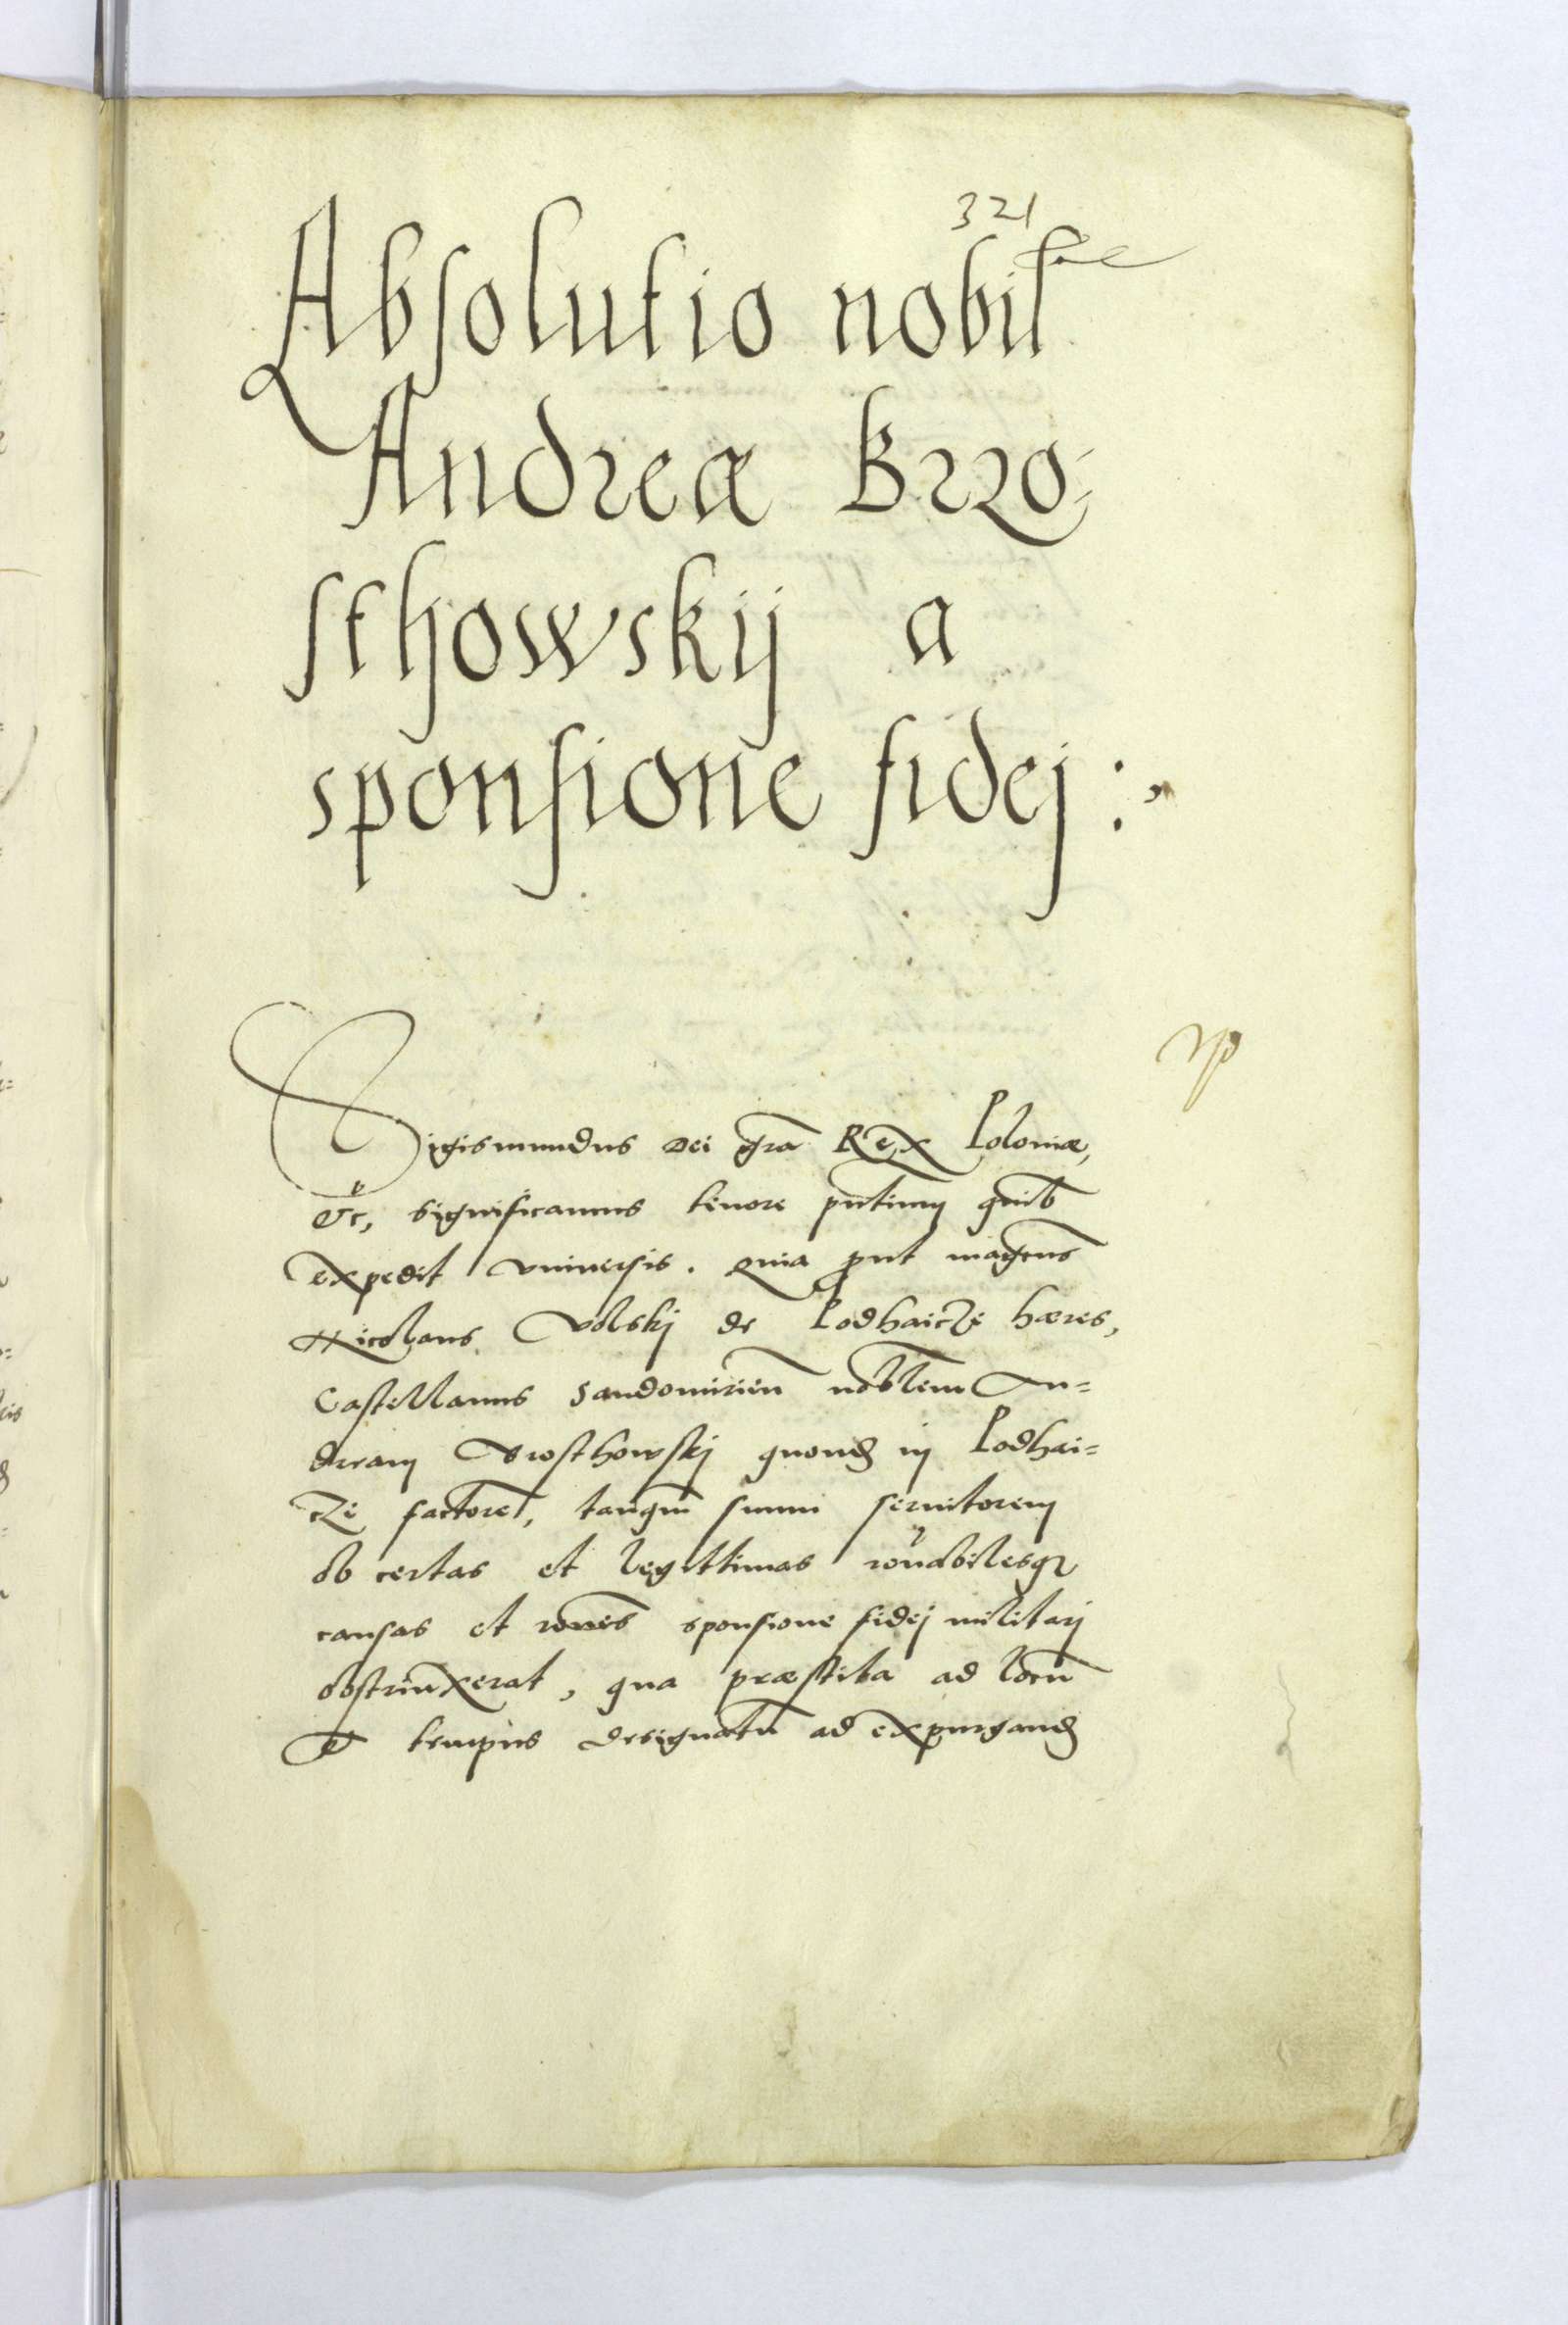 321
Absolutio nobil
Andreæ Brzo-
sthowskij a
sponsione fidej :
Sigismundus Dei gra Rex Poloniæ,
&c, significamus tenore pntium quib
expedit vniuersis. Quia put magcus
Nicolaus Volskj de Podhaicze hæres,
Castellanus Sandomirien noblem An=
dream Brosthowskj quond in Podhai=
cze factore, tanqm suum seruitorem
ob certas et legittimas ronabilesq
causas et rones sponsione fidej militarj
obstrinxerat, qua præstita ad locu
& tempus designatu ad expurgand